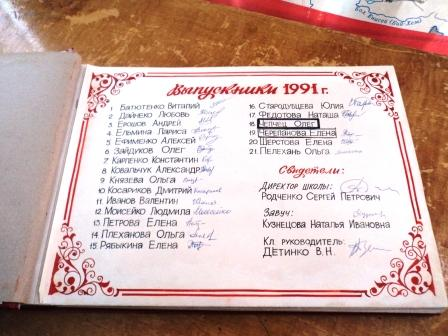 Выпускники 1991 г.
1 Батютенко Виталий
2 Дайнеко Любовь
3 Ерошов Андрей
4 Ельмина Лариса
5 Ефименко Алексей
6 Зайдуков Олег
7 Карпенко Константин
8 Ковальчук Александр
9 Князева Ольга
10 Косариков Дмитрий
11 Иванов Валентин
12 Моисейко Людмила
13 Петрова Елена
14 Плеханова Ольга
15 Рябыкина Елена
16. Стародубцева Юлия
17 Федотова Наташа
18 Чепчец Олег
19 Черепанова Елена
20 Шерстова Елена
21. Пелехань Ольга
Свидетели:
Директор школы:
Родченко Сергей Петрович
Завуч:
Кузнецова Наталья Ивановна
Кл. руководитель:
Детинко В.Н.